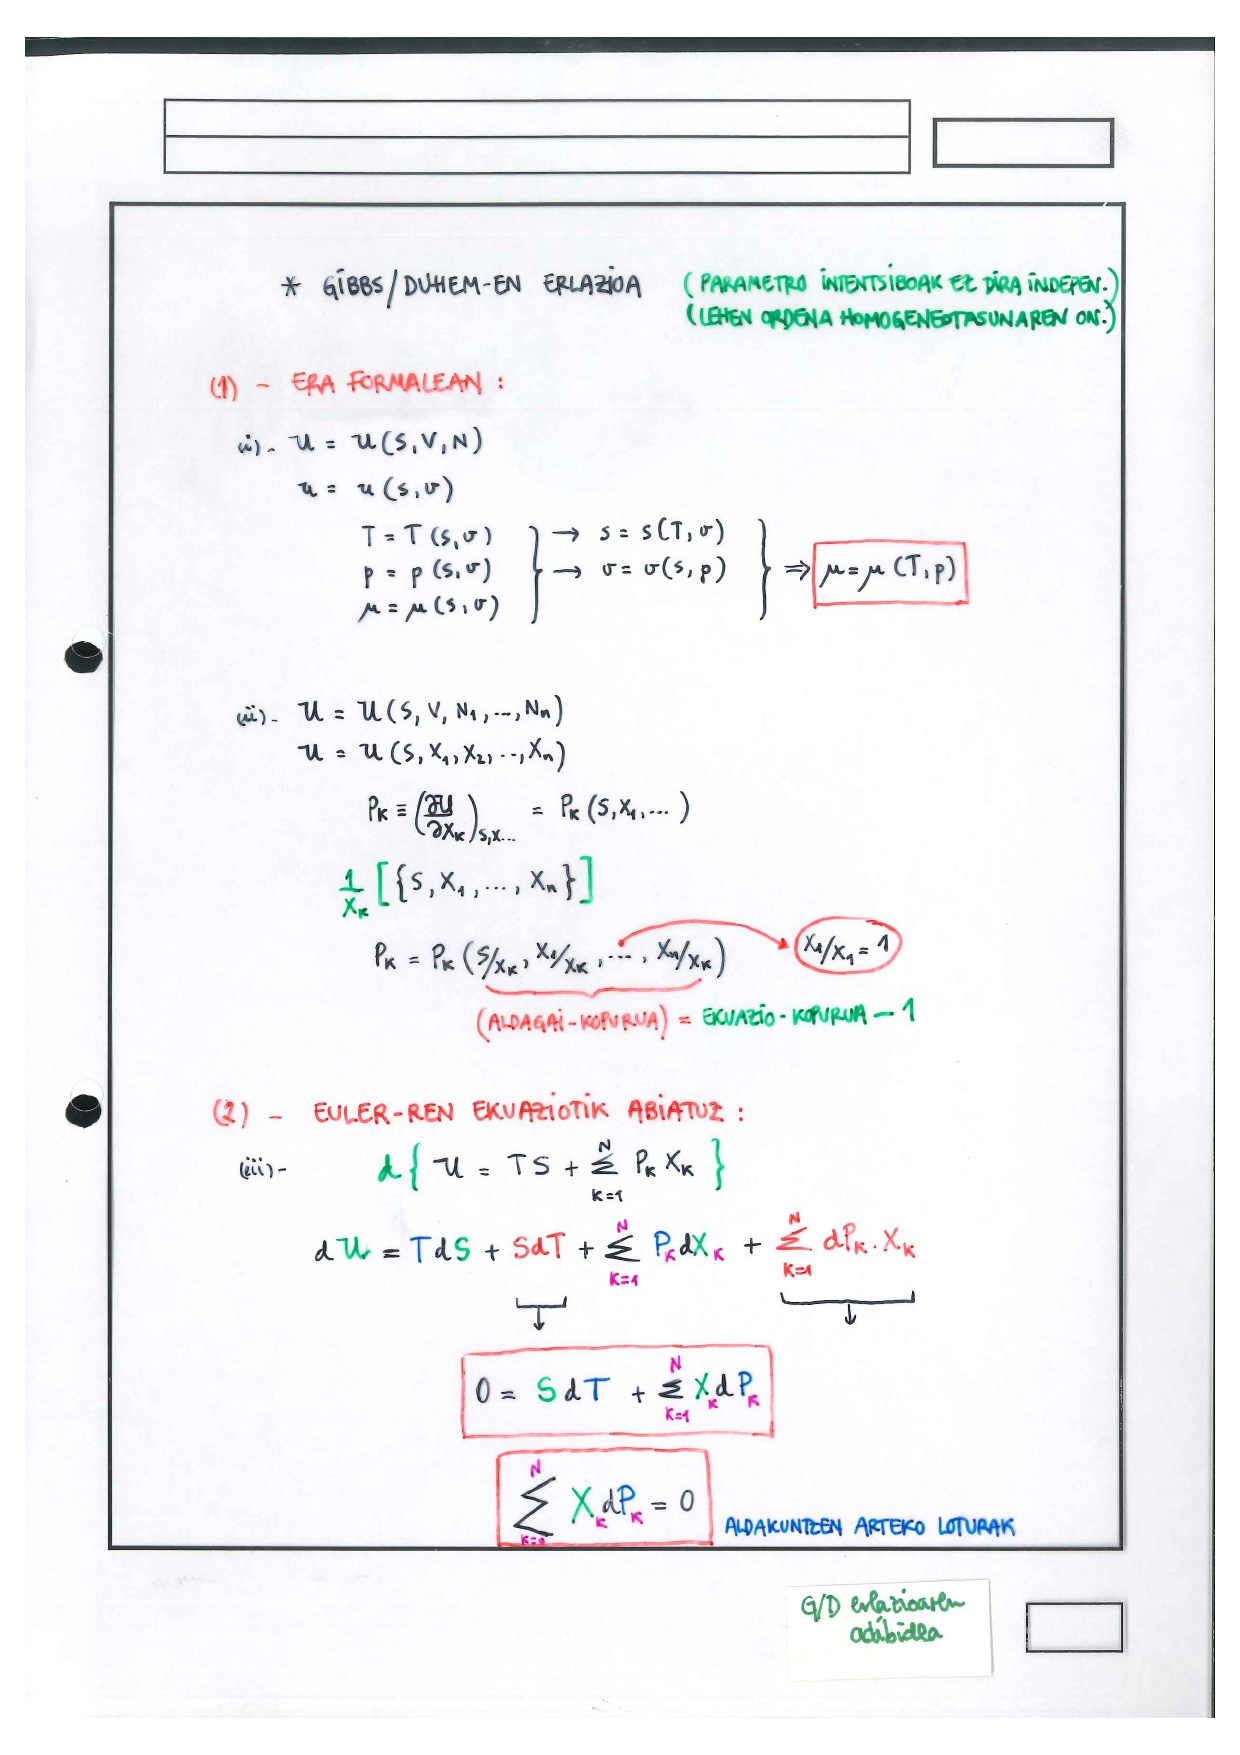 * GIBBS/DUHEM-EN ERLAZIOA (PARAMETRO INTENTSIBOAK EZ DIRA INDEPEN.)
(LEHEN ORDENA HOMOGENEOTASUNAREN ON.)
(1) - ERA FORMALEAN :
(i)- U = U(S,V,N)
u = u(s,v)
T = T(s,v) } → s = s(T,v) }
p = p(s,v) } → v = v(s,p) } ⇒ μ = μ(T,p)
μ = μ(s,v)
(ii)- U = U(S,V,N₁,...,Nₙ)
U = U(S,X₁,X₂,...,Xₙ)
Pₖ ≡ (∂U/∂Xₖ)S,X... = Pₖ(S,X₁,...)
1/Xₖ [{S,X₁,...,Xₙ}]
Pₖ = Pₖ(S/Xₖ, X₁/Xₖ, ..., Xₙ/Xₖ) X₁/X₁ = 1
(ALDAGAI-KOPURUA) = EKUAZIO-KOPURUA - 1
(2) - EULER-REN EKUAZIOTIK ABIATUZ :
(iii)- d{ U = TS + Σ_{K=1}^{N} Pₖ Xₖ }
dU = TdS + SdT + Σ_{K=1}^{N} Pₖ dXₖ + Σ_{K=1}^{N} dPₖ . Xₖ
0 = SdT + Σ_{K=1}^{N} Xₖ dPₖ
Σ^{N} Xₖ dPₖ = 0 ALDAKUNTZEN ARTEKO LOTURAK
G/D erlazioaren
adibidea